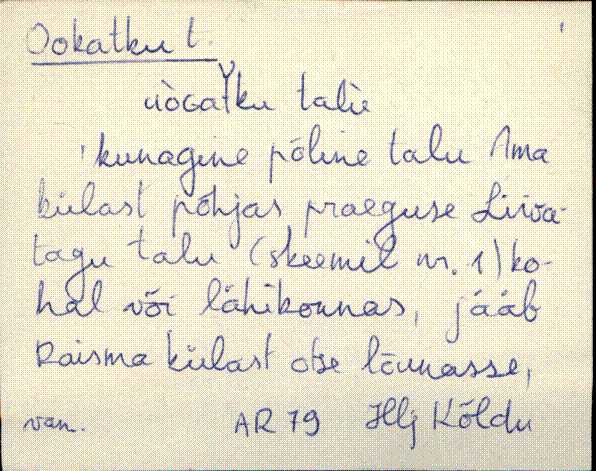 Ookatku t.
ùòɢaťku talù
kunagine põline talu Ima
külast põhjas praeguse Liiva-
tagu talu (skeemil nr. 1) ko-
hal või lähikonnas, jääb
Raisma külast otse lõunasse,
van. AR 79 Hlj Kõldu